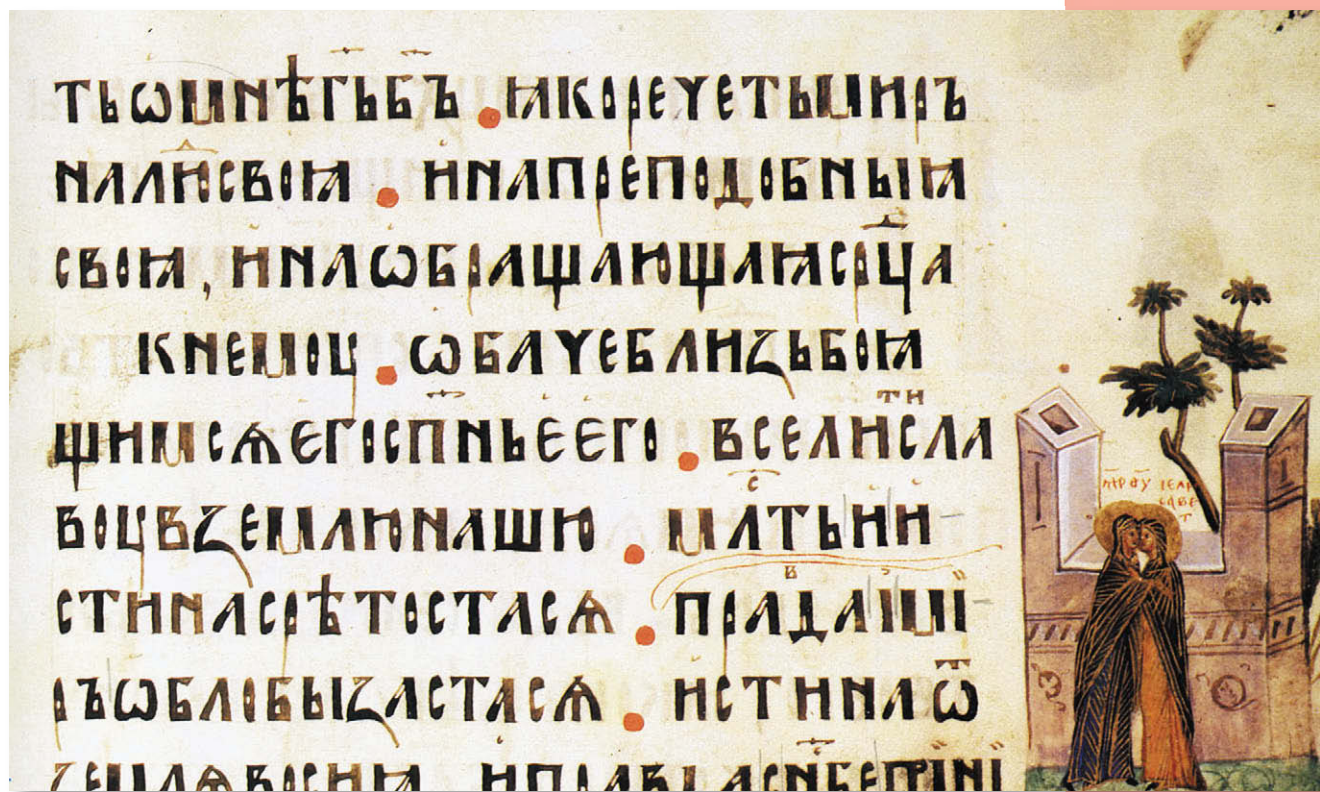 ТЬѠМНѢГ҃ЬБ҃Ъ • ꙖКОРЕЧЕТЬМИРЪ
НАЛЮⷣСВОꙖ • ИНАПРЕПОДОБНЫꙖ
СВОꙖ, ИНАѠБРАЩАЮЩАꙖСРⷣЦА
КНЕМОУ • ѠБАЧЕБЛИЗЬБОꙖ
ЩИМСѦЕГОСП҃НЬЕЕГО • ВСЕЛИⷮⷤСЛА
ВОУВЗЕМЛЮНАШЮ • МЛⷭТЬИИ
СТИНАСРѢТОСТАСѦ • ПРАⷡДАИМИ
РЪѠБЛОБЫЗАСТАСѦ • ИСТИНАѾ
ЗЕМЛѦВОСИꙖ ИПРАВДАСНБЕПРИНИ
МР ѲУ ІЕЛИ
САВЕ
Т